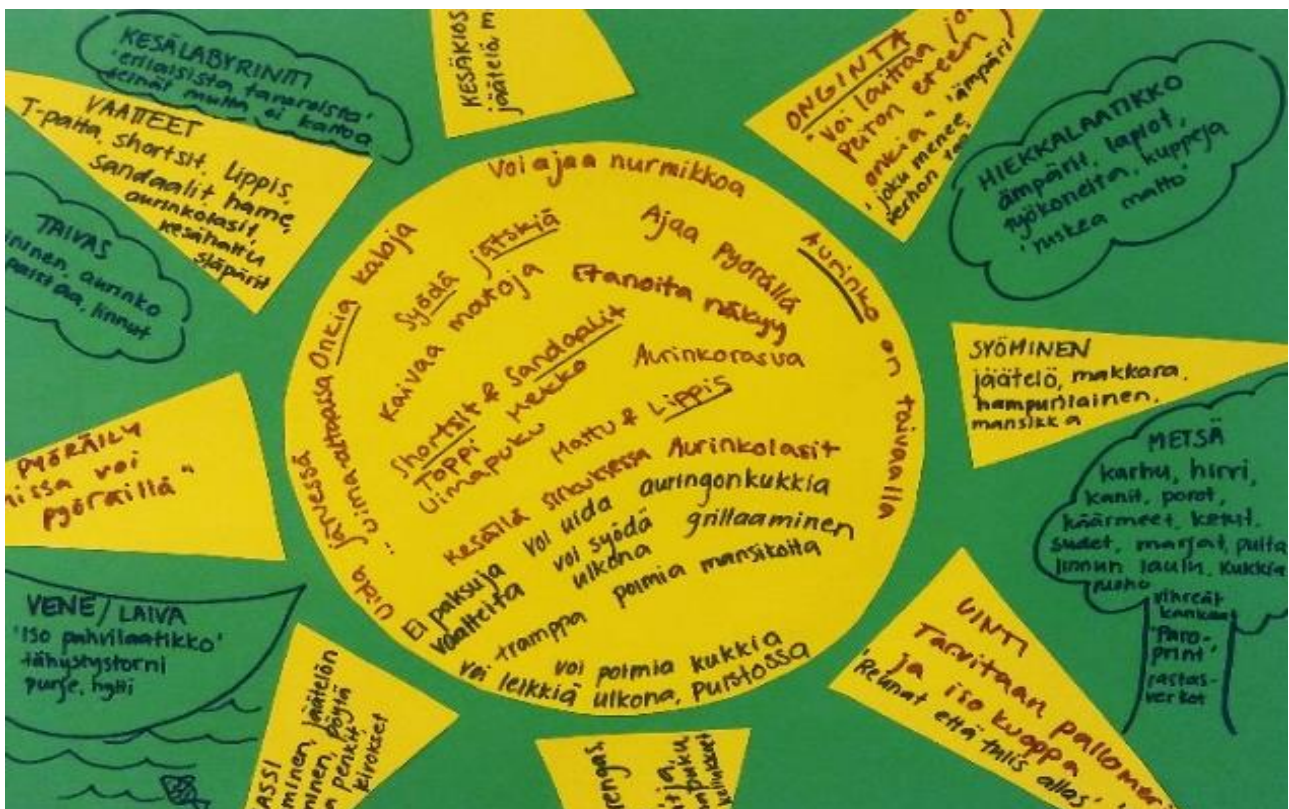 KESÄLABYRINTTI
'erilaisista tavaroista'
seinät mutta ei kattoa
VAATTEET
T-paita, shortsit, lippis,
sandaalit, hame,
aurinkolasit,
kesähattu
släpärit
TAIVAS
aurinko
paistaa, linnut
PYÖRÄILY
missa voi
pyöräillä"
VENE/LAIVA
'iso pahvilaatikko'
tähystystorni
purje, hytti
KESÄKIOS
jäätelö, m
ONGINTA
"voi laittaa jo
peiton eteen
onkia" 'ämpäri'
'joku menee
verhon taa'
HIEKKALAATIKKO
ämpärit, lapiot,
työkoneita, kuppeja
'ruskea matto'
SYÖMINEN
jäätelö, makkara,
hampurilainen,
mansikka
METSÄ
karhu, hirvi,
kanit, porot,
käärmeet, ketut,
sudet, marjat, puita
linnun laulu, kukkia
ruoho
vihreät
kankaat
'Paro-
print'
rastas-
verkot
UINTI
Tarvitaan pallomeri
ja iso kuoppa
'Reunat että tulis allas'
Voi ajaa nurmikkoa
Aurinko on taivaalla
Uida järvessä
uimarannassa
Onkia kaloja
Syödä jätskiä
Kaivaa matoja
Ajaa pyörällä
Etanoita näkyy
Shortsit & Sandaalit
Toppi Mekko
Uimapuku
Aurinkorasva
Hattu & Lippis
Kesällä sirkuksessa
Aurinkolasit
Ei paksuja
vaatteita
voi uida
auringonkukkia
voi syödä
ulkona
grillaaminen
tramppa
poimia mansikoita
voi poimia kukkia
voi leikkiä ulkona, puistossa
ASSI
minen, jäätelön
minen, pöytä
penkit
kirokset
rengas,